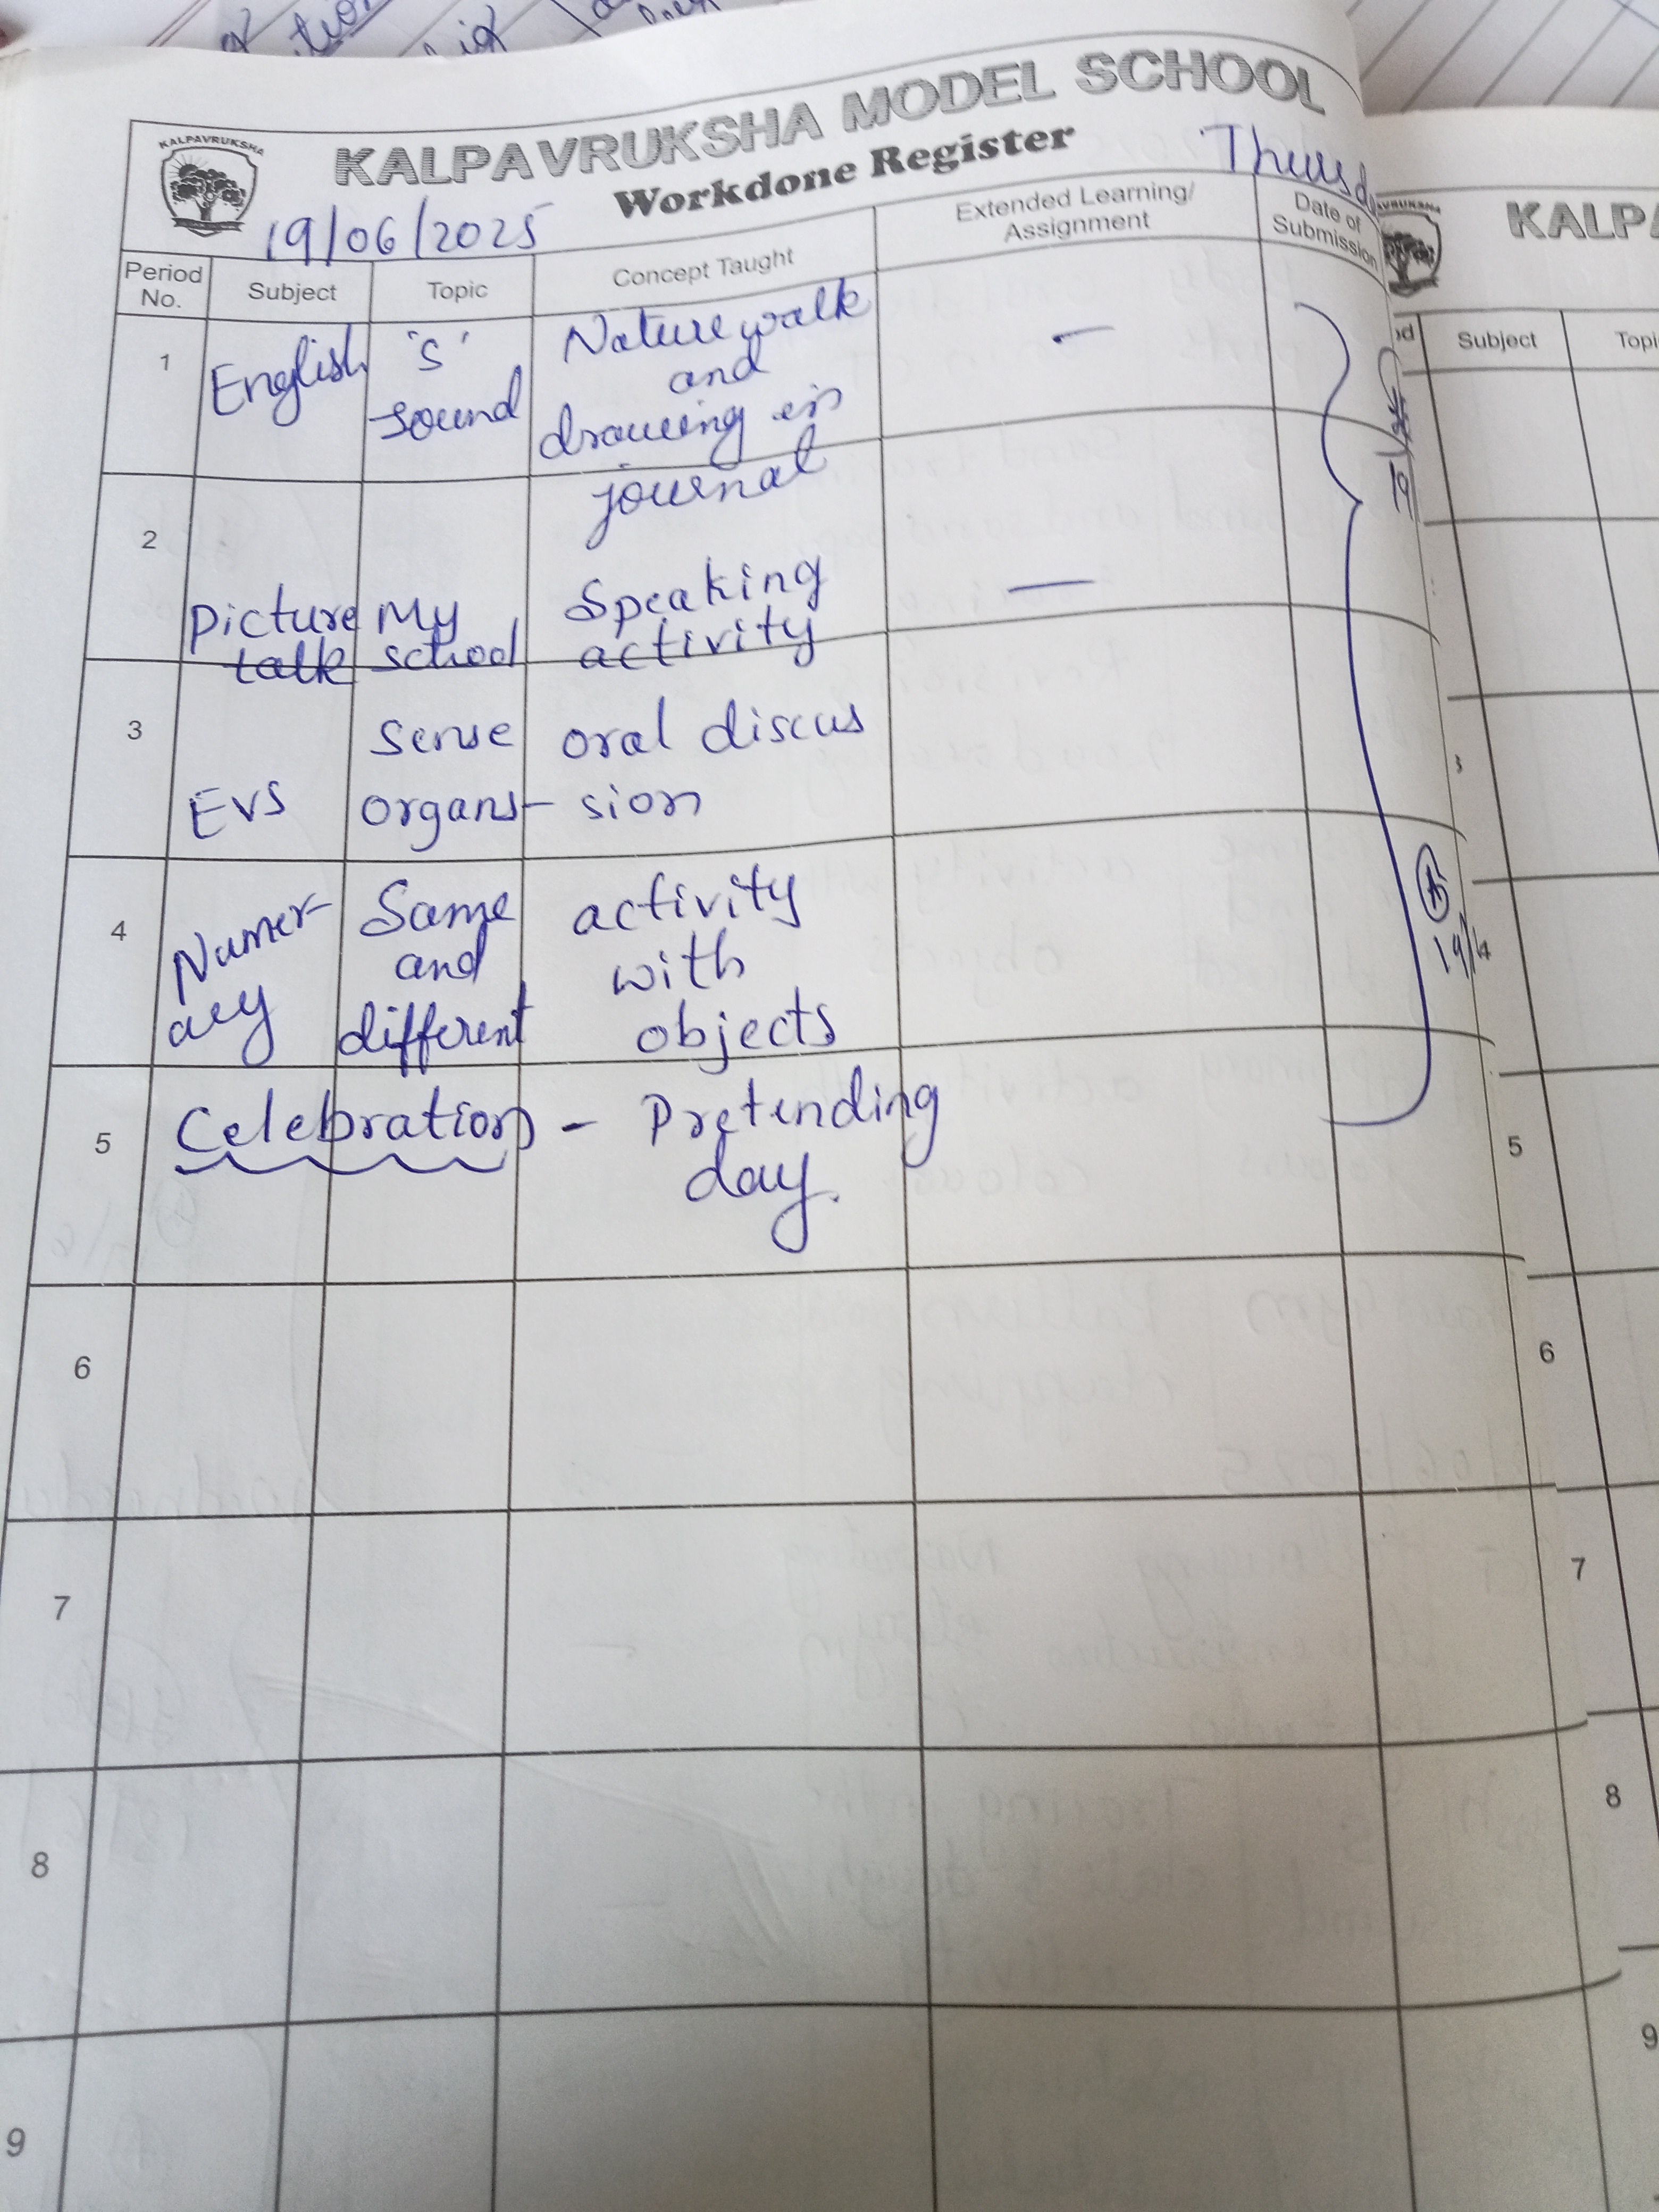 KALPAVRUKSHA MODEL SCHOOL
KALPAVRUKSHA
Workdone Register
19/06/2025
Thursd
Period No.
Subject
Topic
Concept Taught
Extended Learning/
Assignment
Date of
Submission
1
English
's'
sound
Nature walk
and
drawing in
journal
—
2
Picture
talk
My
school
Speaking
activity
—
3
Evs
Sense
organs-
oral discus
sion
4
Numer-
acy
Same
and
different
activity
with
objects
5
Celebration - Pretending
day.
6
7
8
9
KALPA
Subject
Topi
5
6
7
8
9